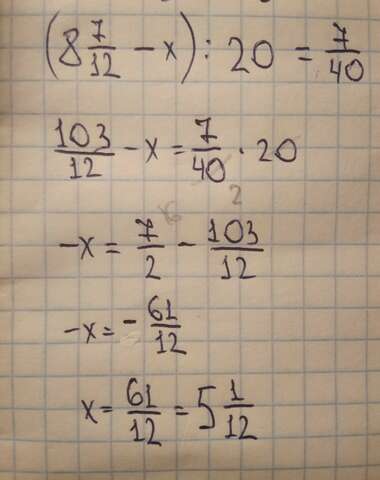 (8 7/12 - x) : 20 = 7/40
103/12 - x = 7/40 · 20
2
-x = 7/2 - 103/12
-x = - 61/12
x = 61/12 = 5 1/12